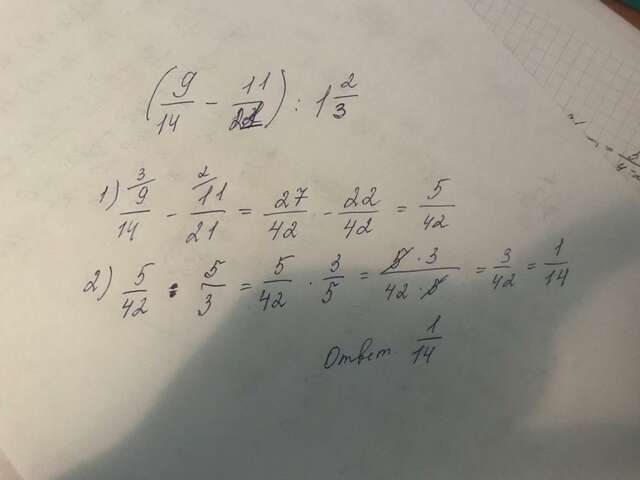 (9/14 - 11/21) : 1 2/3
1) 9/14 (3 - 11/21 (2 = 27/42 - 22/42 = 5/42
2) 5/42 : 5/3 = 5/42 · 3/5 = 5·3/42·5 = 3/42 = 1/14
Ответ. 1/14